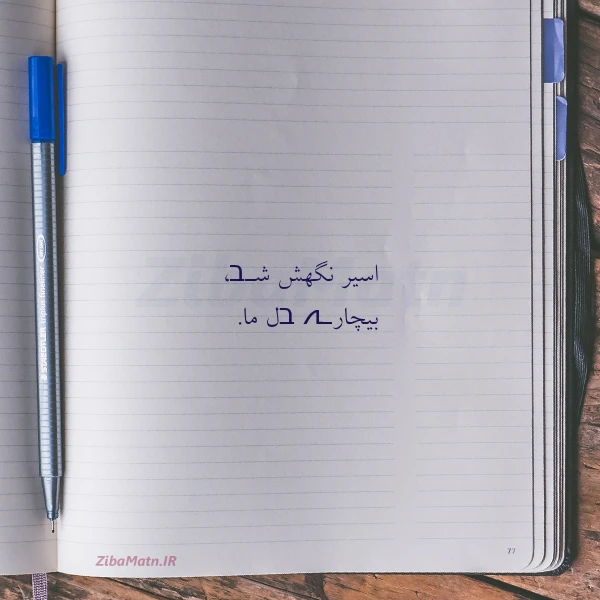 اسیر نگهش شد،
بیچاره دل ما.
ZibaMatn
ZibaMatn.IR
77